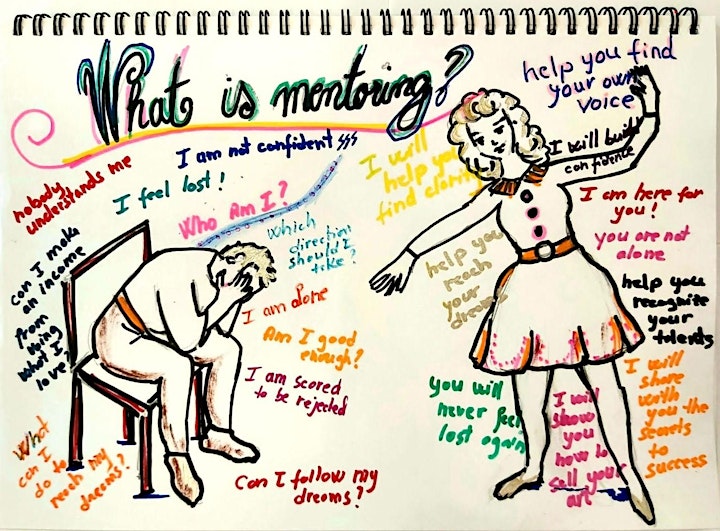 What is mentoring?
nobody
understands me
I am not confident
I feel lost!
Who Am I?
Which
direction
should I
take?
can I make
an income
from
doing
what I
love?
I am alone
Am I good
enough?
I am scared
to be rejected
What
can I
do to
reach my
dreams?
Can I follow my
dreams?
help you find
your own
voice
I will build
confidence
I will
help you
find clarity
I am here for
you!
you are not
alone
help you
reach
your
dreams
help you
recognize
your
talents
you will
never feel
lost again
I will
show
you
how to
sell your
art
I will
share
with
you the
secrets
to
success